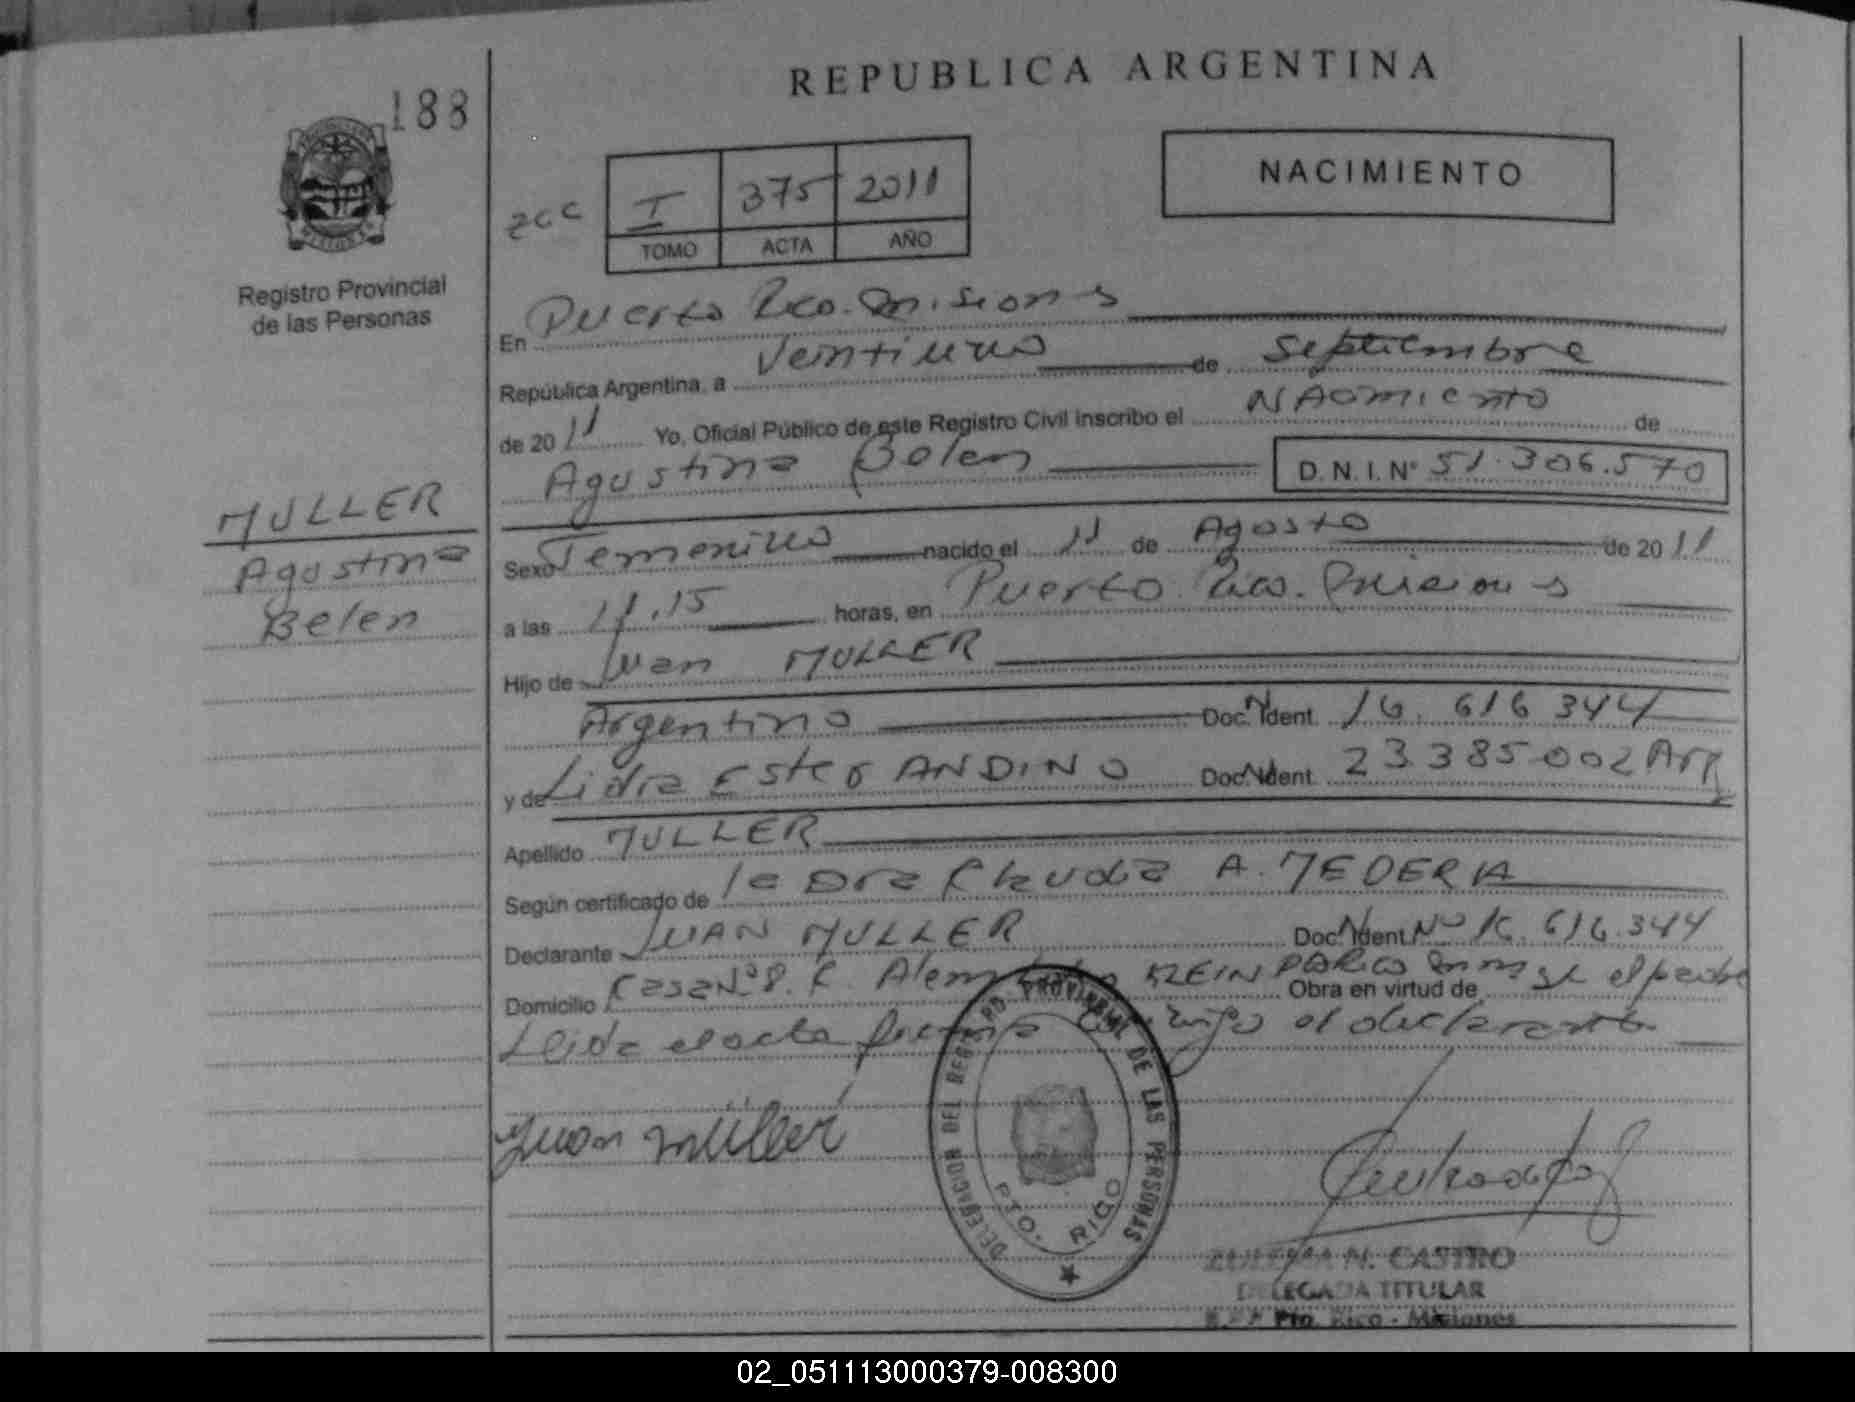 188
REPUBLICA ARGENTINA
NACIMIENTO
zcc I 375 2011
TOMO ACTA AÑO
Registro Provincial
de las Personas
En Puerto Rico. Misiones
República Argentina, a Veintiuno de Septiembre
de 2011 Yo, Oficial Público de este Registro Civil inscribo el NAcimiento de
Agustina Belen D.N.I.Nº 51.306.570
MULLER
Agustina
Belen
Sexo Femenino nacido el 11 de Agosto de 2011
a las 11.15 horas, en Puerto Rico. Misiones
Hijo de Juan MULLER
Argentino Doc. Ident. 16.616 344
y de Lidia Ester ANDINO Doc. Ident. 23385002 Arg
Apellido MULLER
Según certificado de la Dra Claudia A.
Declarante JUAN MULLER Doc. Ident Nº 16.616.344
Domicilio Casa Nº 8. KLEIN Obra en virtud de el padre
Leida el acta firma el declarante
Juan Müller
DELEGACION DEL REGISTRO PROVINCIAL DE LAS PERSONAS
PTO. RICO
ZULEMA N. CASTRO
DELEGADA TITULAR
Pto. Rico - Misiones
02_051113000379-008300